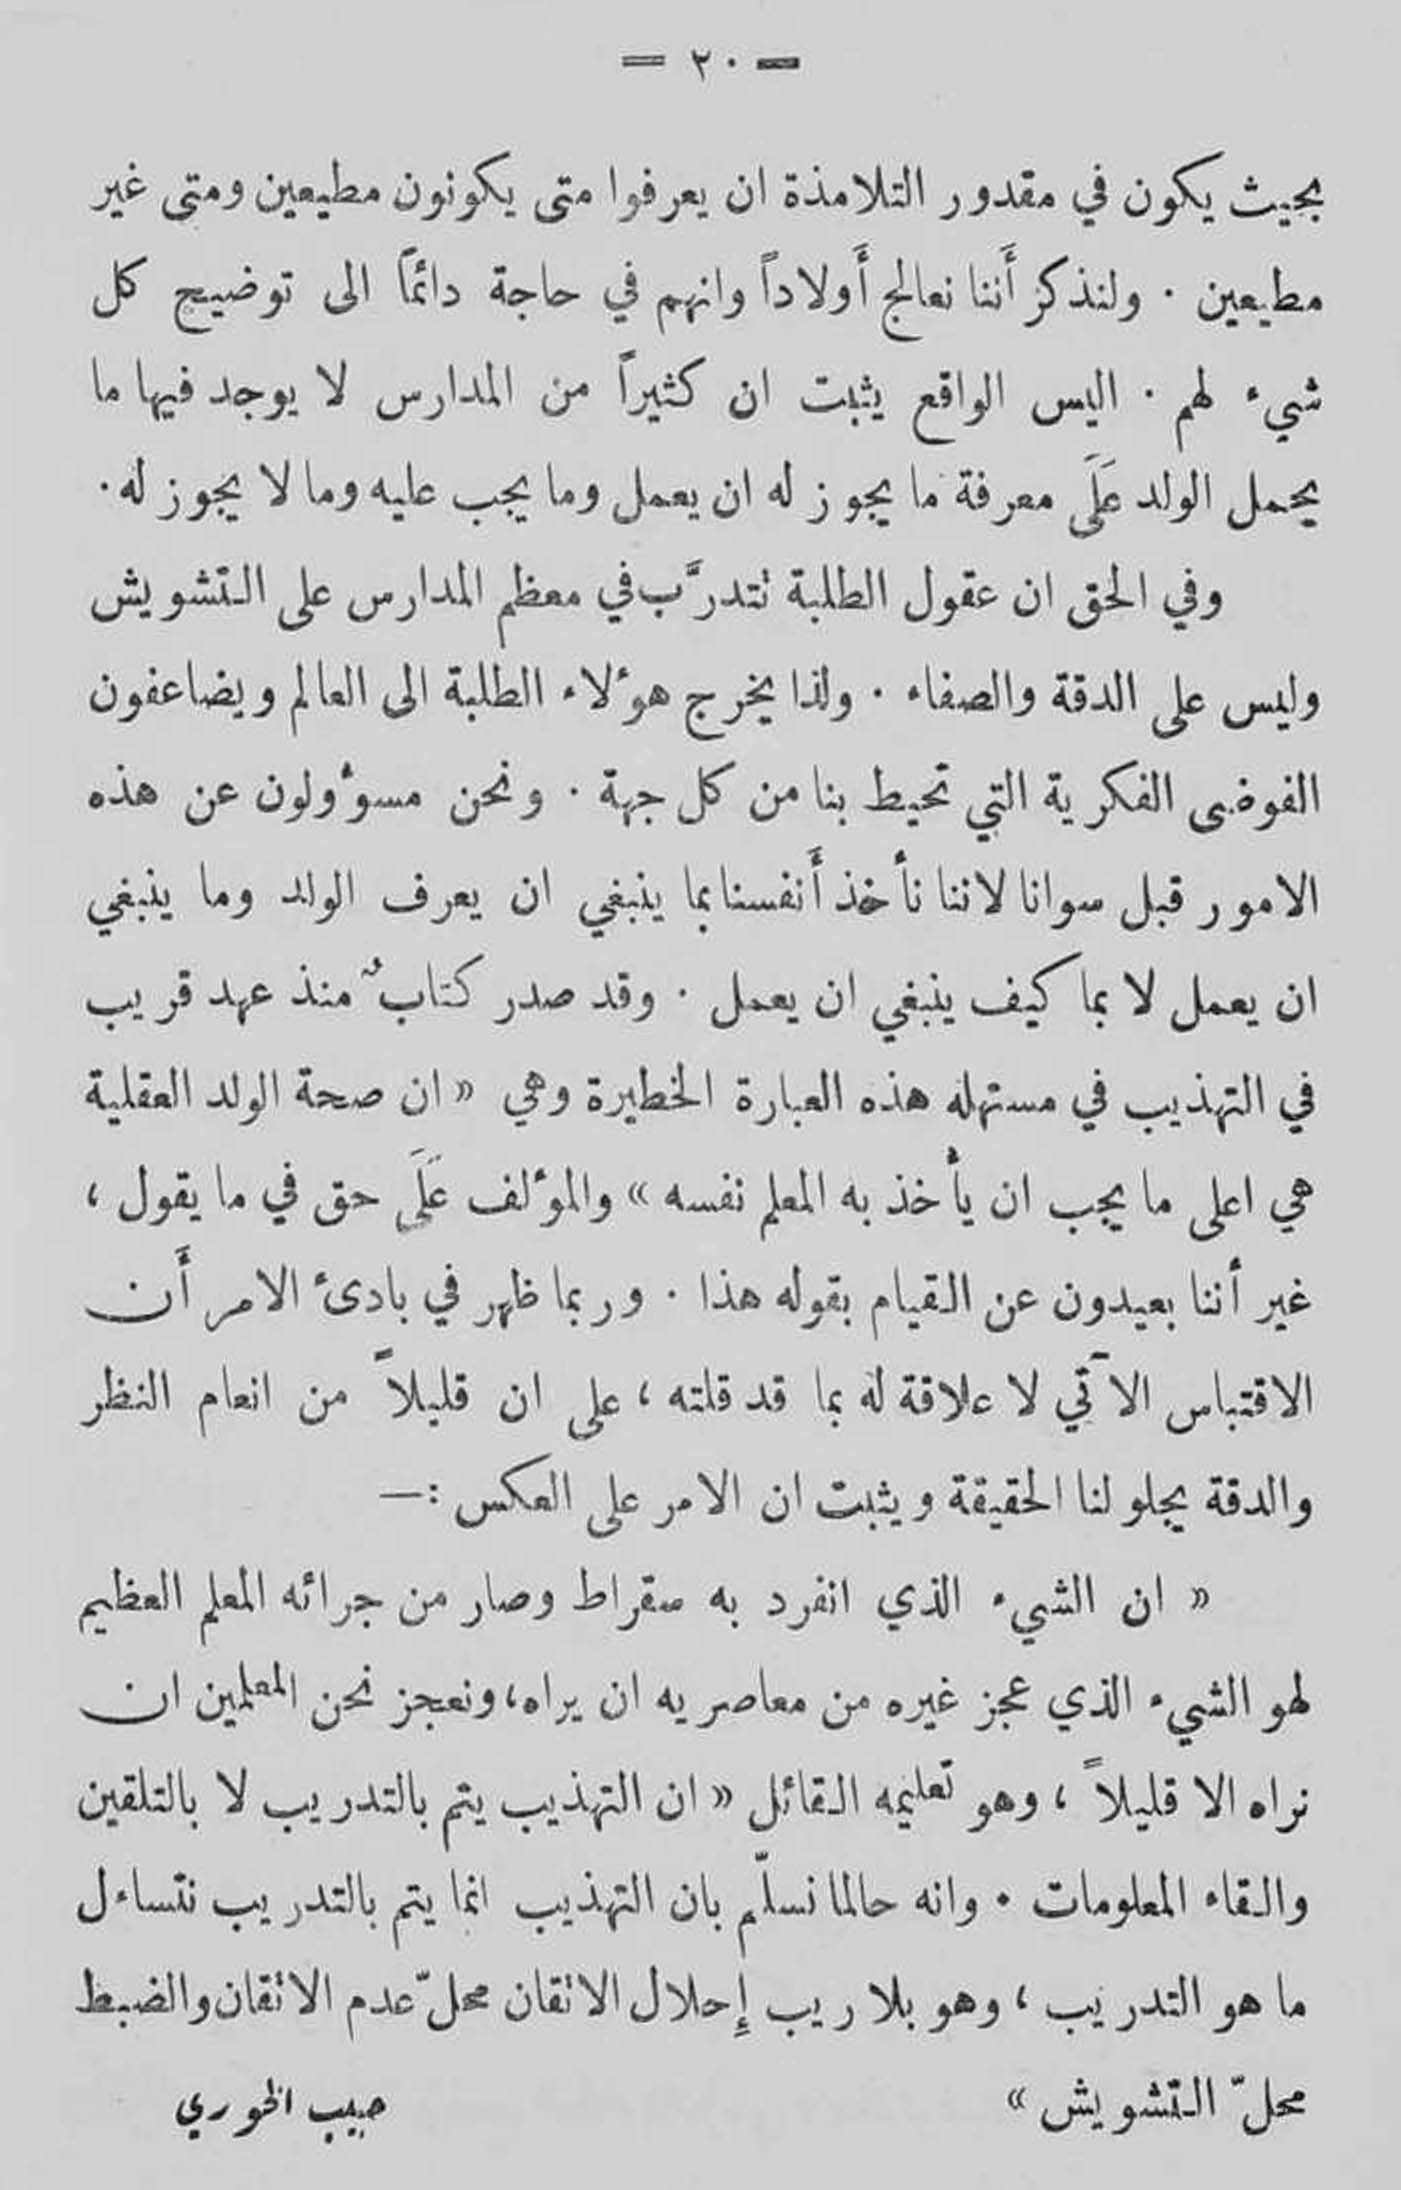 = ٢٠ =
بحيث يكون في مقدور التلامذة ان يعرفوا متى يكونون مطيعين ومتى غير
مطيعين . ولنذكر أَننا نعالج أَولاداً وانهم في حاجة دائماً الى توضيح كل
شيء لهم . اليس الواقع يثبت ان كثيراً من المدارس لا يوجد فيها ما
يحمل الولد عَلَى معرفة ما يجوز له ان يعمل وما يجب عليه وما لا يجوز له .
وفي الحق ان عقول الطلبة تتدرَّب في معظم المدارس على التشويش
وليس على الدقة والصفاء . ولذا يخرج هؤلاء الطلبة الى العالم ويضاعفون
الفوضى الفكرية التي تحيط بنا من كل جهة . ونحن مسؤولون عن هذه
الامور قبل سوانا لاننا نأخذ أَنفسنا بما ينبغي ان يعرف الولد وما ينبغي
ان يعمل لا بما كيف ينبغي ان يعمل . وقد صدر كتابٌ منذ عهد قريب
في التهذيب في مستهله هذه العبارة الخطيرة وهي « ان صحة الولد العقلية
هي اعلى ما يجب ان يأخذ به المعلم نفسه » والمؤلف عَلَى حق في ما يقول ،
غير أننا بعيدون عن القيام بقوله هذا . وربما ظهر في بادئ الامر أَن
الاقتباس الآتي لا علاقة له بما قد قلته ، على ان قليلاً من انعام النظر
والدقة يجلو لنا الحقيقة ويثبت ان الامر على العكس :—
« ان الشيء الذي انفرد به سقراط وصار من جرائه المعلم العظيم
لهو الشيء الذي عجز غيره من معاصريه ان يراه ، ونعجز نحن المعلمين ان
نراه الا قليلاً ، وهو تعليمه القائل « ان التهذيب يتم بالتدريب لا بالتلقين
والقاء المعلومات . وانه حالما نسلّم بان التهذيب انما يتم بالتدريب نتساءل
ما هو التدريب ، وهو بلا ريب إِحلال الاتقان محلّ عدم الاتقان والضبط
محلّ التشويش » حبيب الخوري